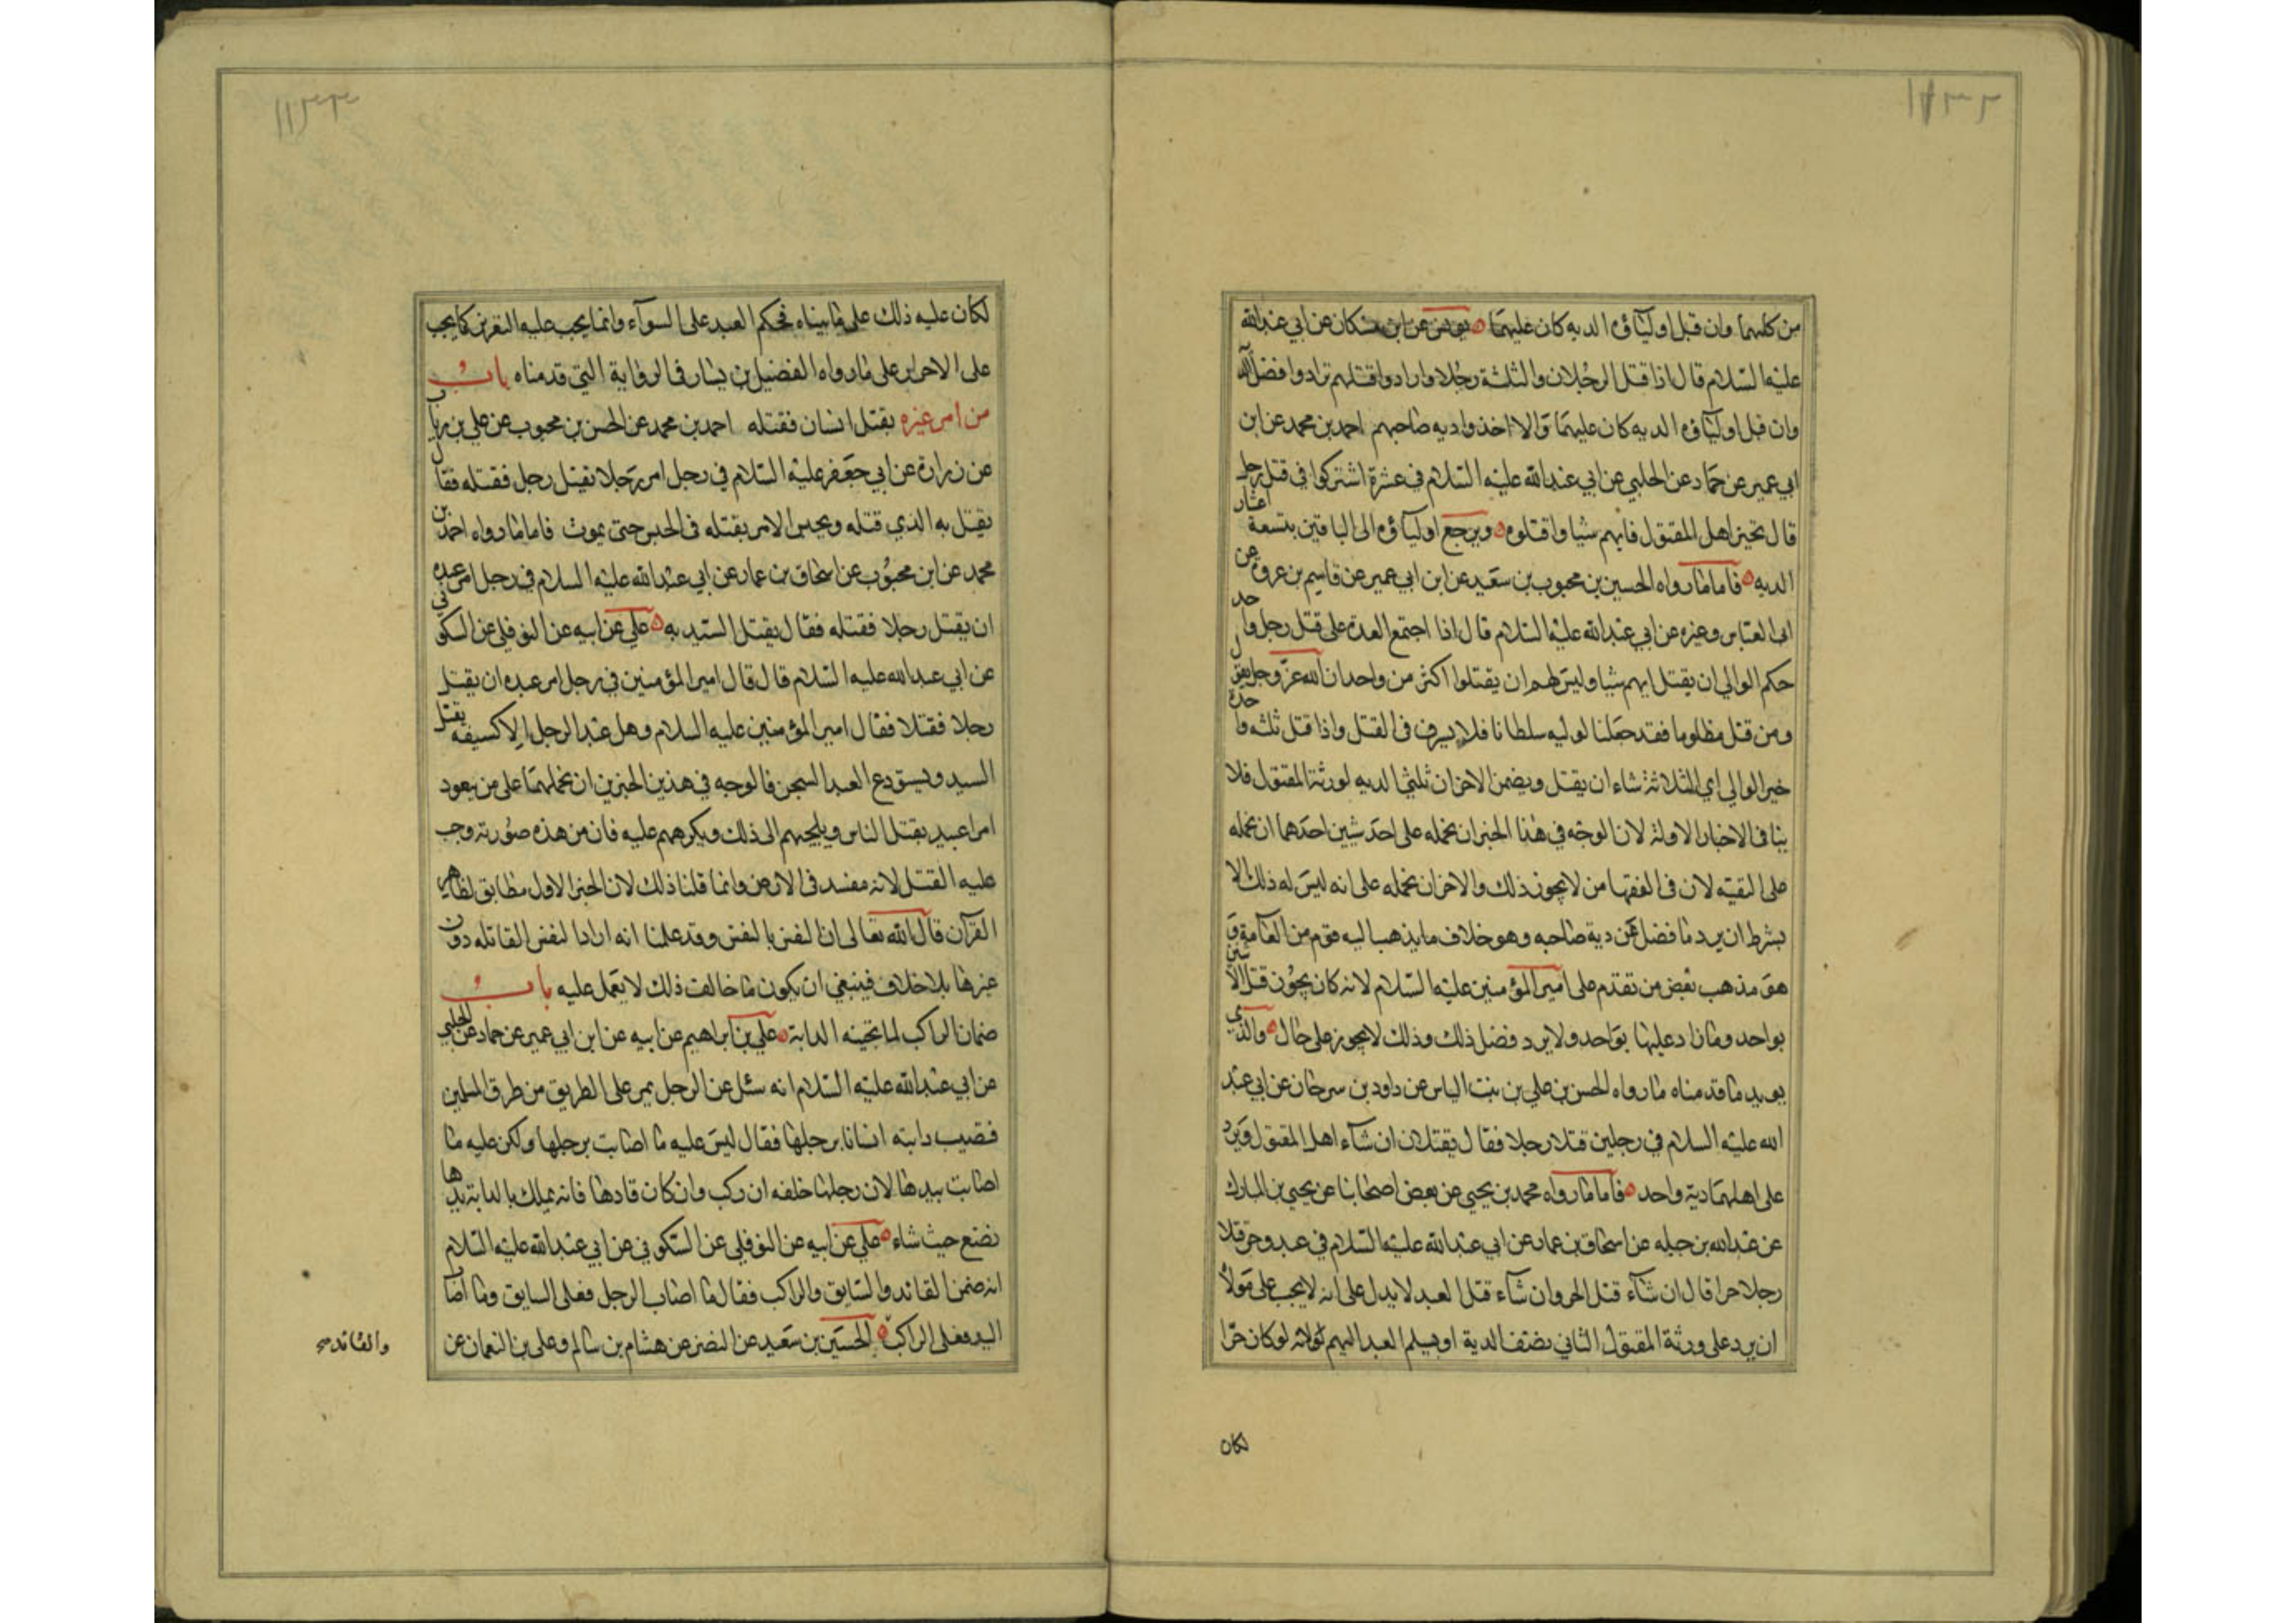 ١١٣٢
من كلهما وان قبل اولياؤه الديه كان عليهما يونس عن ابن مسكان عن ابي عبدالله
عليه السلام قال اذا قتل الرجلان والثلثة رجلا وارادوا قتلهم ترادوا فضل الد
وان قبل اولياؤه الديه كان عليهما والا اخذوا ديه صاحبهم احمد بن محمد عن ابن
ابي عمير عن حماد عن الحلبي عن ابي عبدالله عليه السلام في عشرة اشتركوا في قتل رجل
قال يخير اهل المقتول فايهم شياوا قتلوه ويرجع اولياؤه الى الباقين بتسعة اعشار
الديه فاما ما رواه الحسين بن محبوب بن سعيد عن ابن ابي عمير عن قاسم بن عروة عن
ابى العباس وغيره عن ابي عبدالله عليه السلام قال اذا اجتمع العدة على قتل رجل واحد
حكم الوالي ان يقتل ايهم شيا وليس لهم ان يقتلوا اكثر من واحد ان الله عز وجل يقول
ومن قتل مظلوما فقد جعلنا لوليه سلطانا فلا يسرف في القتل واذا قتل ثلثه واحدة
خير الوالي اي الثلاثة شاء ان يقتل ويضمن الاخران ثلثي الديه لورثة المقتول فلا
ينافى الاخبار الاولة لان الوجه في هذا الخبران نحمله على احد شيين احدهما ان نحمله
على التقيه لان فى الفقها من لا يجوز ذلك والاخران نحمله على انه ليس له ذلك الا
بشرط ان يرد ما فضل عن دية صاحبه وهو خلاف ما يذهب اليه قوم من العامة و
هو مذهب بعض من تقدم على امير المؤمنين عليه السلام لانه كان يجوز قتل الاثنين
بواحد وما زاد عليها بواحد ولا يرد فضل ذلك وذلك لا يجوز على حال والذي
يويد ما قدمناه ما رواه الحسن بن علي بن بنت الياس عن داود بن سرحان عن ابي عبد
الله عليه السلام في رجلين قتلا رجلا فقال يقتلان ان شاء اهل المقتول ويرد
على اهلهما دية واحد فاما ما رواه محمد بن يحيى عن بعض اصحابنا عن يحيى بن المبارك
عن عبدالله بن جبله عن اسحاق بن عمار عن ابي عبدالله عليه السلام في عبد وحر قتلا
رجلا حرا قال ان شاء قتل الحر وان شاء قتل العبد لا يدل على انه لا يجب على مولا
ان يرد على ورثة المقتول الثاني نصف الدية او يسلم العبد اليهم لولانه لو كان حرا
لكان
١١٣٣
لكان عليه ذلك على ما بيناه فحكم العبد على السواء وانما يجب عليه التعزير كما يجب
على الاحرار على ما رواه الفضيل بن يسار فى الرواية التي قدمناه باب
من امر غيره بقتل انسان فقتله احمد بن محمد عن الحسن بن محبوب عن علي بن رياب
عن زرارة عن ابي جعفر عليه السلام في رجل امر رجلا بقتل رجل فقتله فقال
يقتل به الذي قتله ويحبس الامر بقتله فى الحبس حتى يموت فاما ما رواه احمد بن
محمد عن ابن محبوب عن اسحاق بن عمار عن ابي عبدالله عليه السلام في رجل امر عبده
ان يقتل رجلا فقتله فقال يقتل السيد به علي عن ابيه عن النوفلي عن السكوني
عن ابي عبدالله عليه السلام قال قال امير المؤمنين في رجل امر عبده ان يقتل
رجلا فقتلا فقال امير المؤمنين عليه السلام وهل عبد الرجل الا كسيفه يقتل
السيد ويستودع العبد السجن فالوجه في هذين الخبرين ان نحملهما على من يعود
امر عبيد بقتل الناس ويلجيهم الى ذلك ويكرههم عليه فان من هذه صورته وجب
عليه القتل لانه مفسد فى الارض وانما قلنا ذلك لان الخبر الاول مطابق لظاهر
القرآن قال الله تعالى ان النفس بالنفس وقد علمنا انه اراد النفس القاتله دون
غيرها بلا خلاف فينبغي ان يكون ما خالف ذلك لا يعمل عليه باب
ضمان الراكب لما تجنيه الدابة علي بن ابراهيم عن ابيه عن ابن ابي عمير عن حماد عن الحلبي
عن ابي عبدالله عليه السلام انه سئل عن الرجل يمر على الطريق من طرق المسلمين
فتصيب دابته انسانا برجلها فقال ليس عليه ما اصابت برجلها ولكن عليه ما
اصابت بيدها لان رجلها خلفه ان ركب وان كان قادها فانه يملك بالدابة يدها
يضع حيث شاء علي عن ابيه عن النوفلي عن السكوني عن ابي عبدالله عليه السلام
انه ضمن القائد والسايق والراكب فقال ما اصاب الرجل فعلى السايق وما اصاب
اليد فعلى الراكب الحسين بن سعيد عن النضر عن هشام بن سالم وعلي بن النعمان عن
والقائد